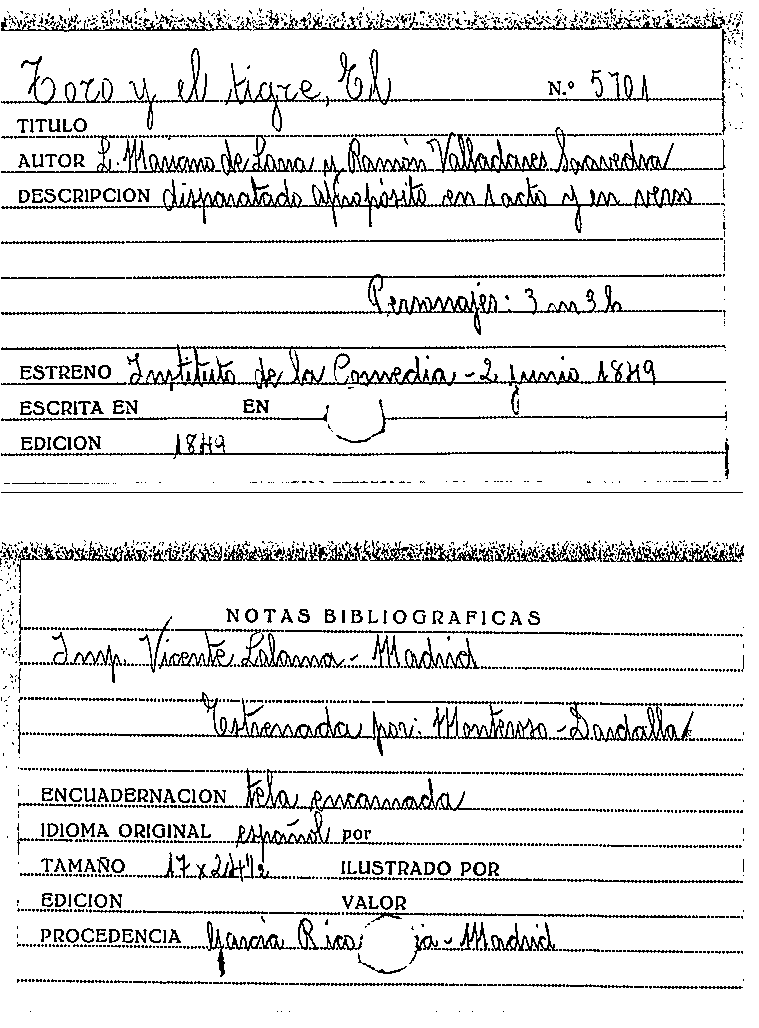 Toro y el tigre, El N.º 5701
TITULO
AUTOR L. Mariano de Larra y Ramón Valladares Saavedra
DESCRIPCION disparatado apropósito en 1 acto y en verso
Personajes: 3 m 3 h
ESTRENO Instituto de la Comedia - 2 junio 1849
ESCRITA EN EN
EDICION 1849
NOTAS BIBLIOGRAFICAS
Imp. Vicente Lalama - Madrid
Estrenada por: Monteroso - Dardalla
ENCUADERNACION tela encarnada
IDIOMA ORIGINAL español por
TAMAÑO 17 x 24 1/2 ILUSTRADO POR
EDICION VALOR
PROCEDENCIA García Rico ia - Madrid